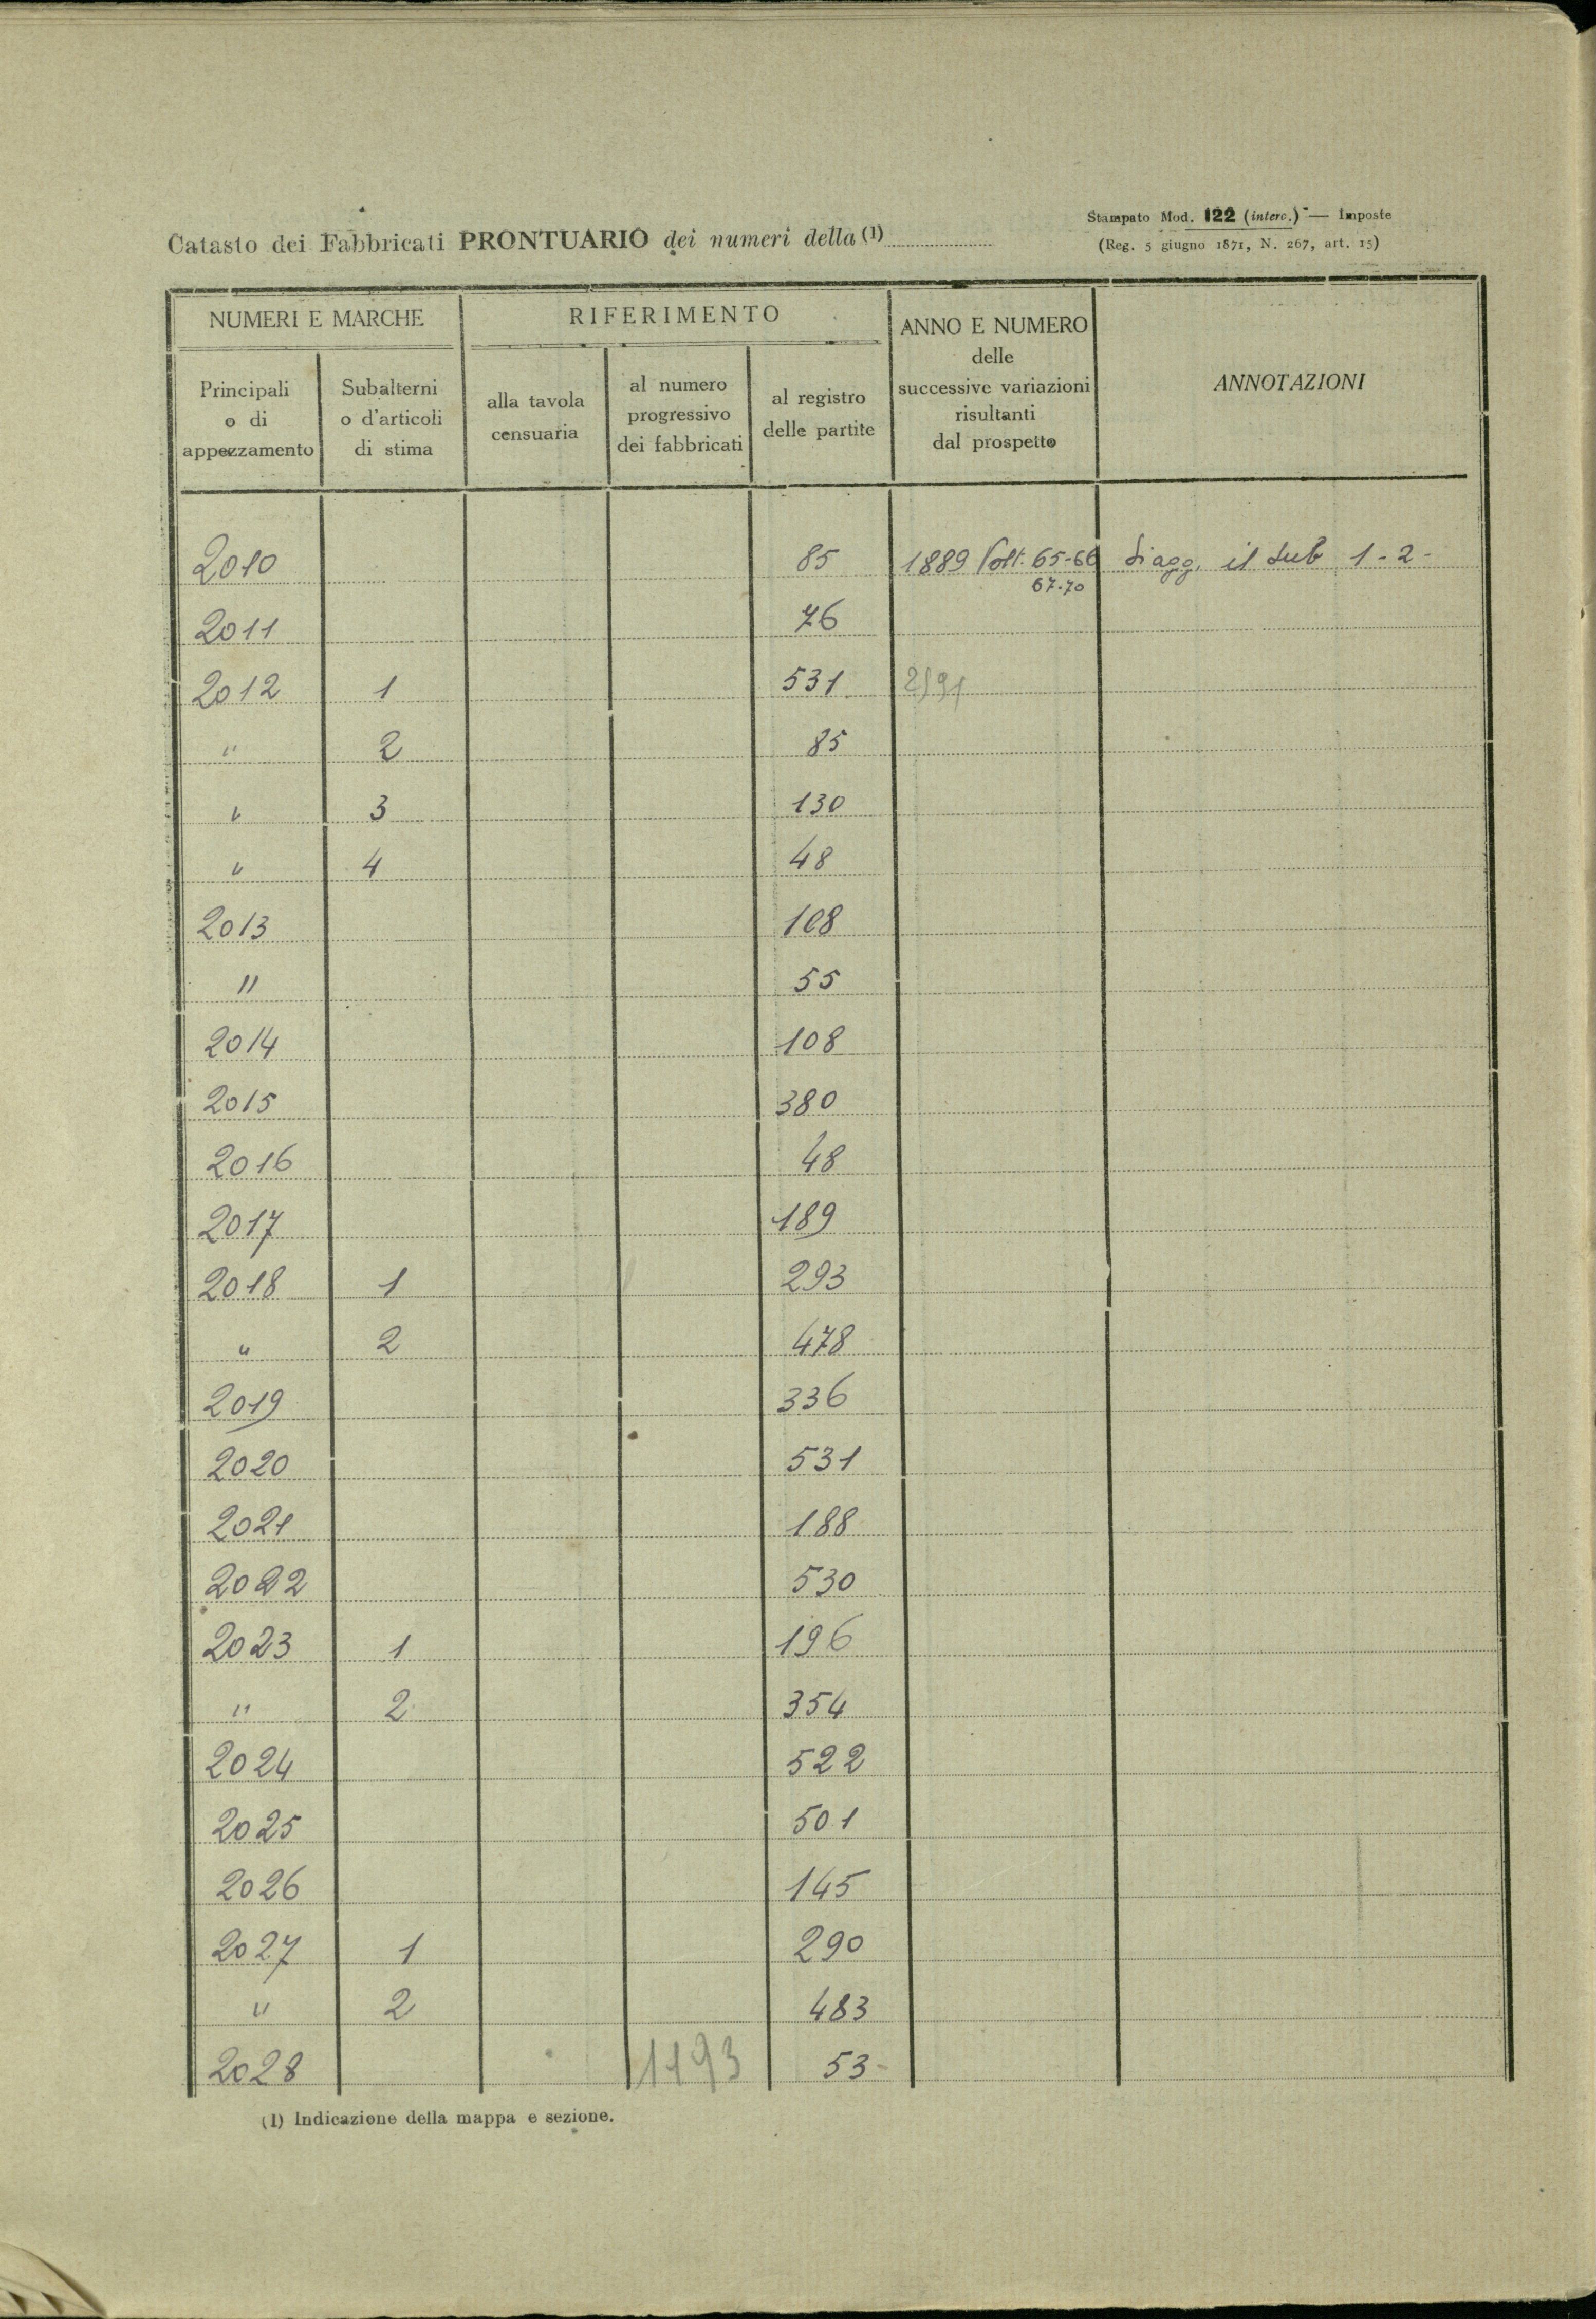 Stampato Mod. 122 (interc.) — Imposte
Catasto dei Fabbricati PRONTUARIO dei numeri della (1)
(Reg. 5 giugno 1871, N. 267, art. 15)
NUMERI E MARCHE
RIFERIMENTO
ANNO E NUMERO
delle
successive variazioni
risultanti
dal prospetto
ANNOTAZIONI
Principali
o di
appezzamento
Subalterni
o d'articoli
di stima
alla tavola
censuaria
al numero
progressivo
dei fabbricati
al registro
delle partite
2010 85 1889 65-66 Si agg. il sub 1-2-
67-70
2011 76
2012 1 531
" 2 85
" 3 130
" 4 48
2013 108
" 55
2014 108
2015 380
2016 48
2017 189
2018 1 293
" 2 478
2019 336
2020 531
2021 188
2022 530
2023 1 196
" 2 354
2024 522
2025 501
2026 145
2027 1 290
" 2 483
2028 1193 53-
(1) Indicazione della mappa e sezione.